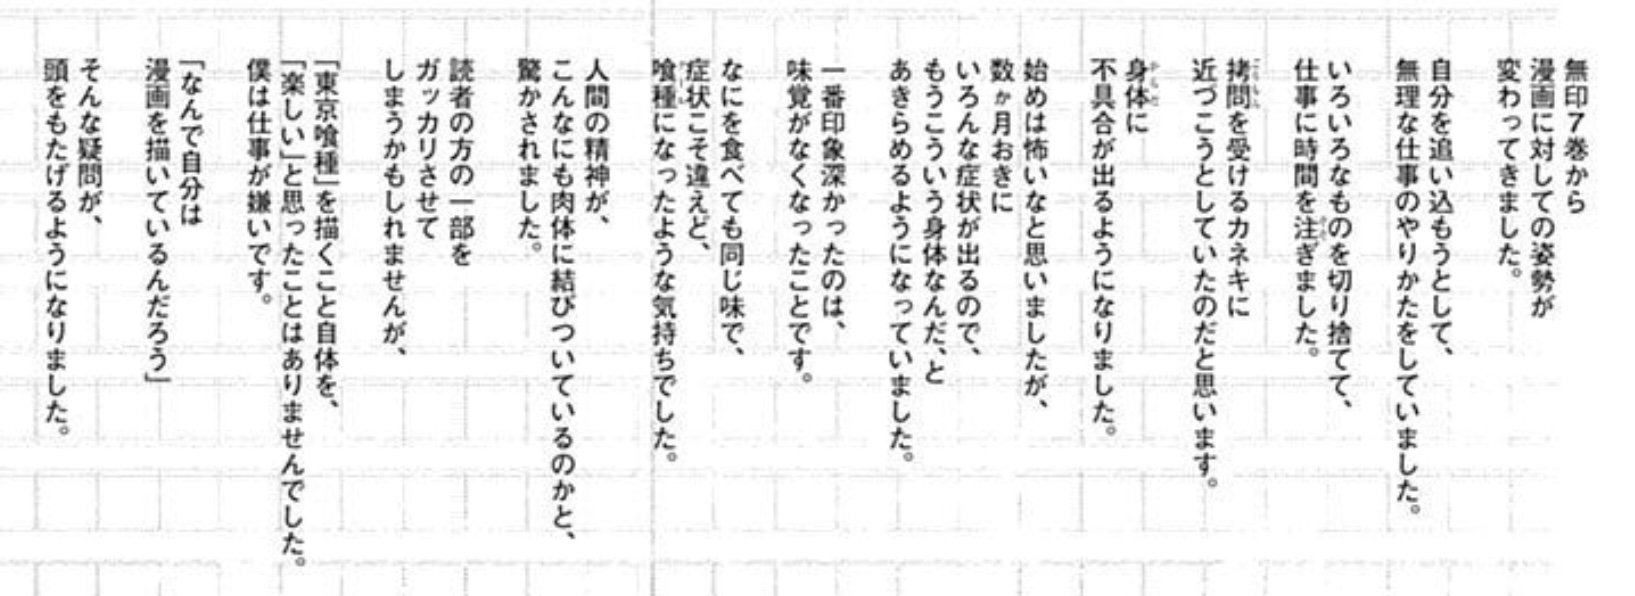 無印7巻から
漫画に対しての姿勢が
変わってきました。
自分を追い込もうとして、
無理な仕事のやりかたをしていました。
いろいろなものを切り捨てて、
仕事に時間を注ぎました。
拷問を受けるカネキに
近づこうとしていたのだと思います。
身体に
不具合が出るようになりました。
始めは怖いなと思いましたが、
数ヵ月おきに
いろんな症状が出るので、
もうこういう身体なんだ、と
あきらめるようになっていました。
一番印象深かったのは、
味覚がなくなったことです。
なにを食べても同じ味で、
症状こそ違えど、
喰種になったような気持ちでした。
人間の精神が、
こんなにも肉体に結びついているのかと、
驚かされました。
読者の方の一部を
ガッカリさせて
しまうかもしれませんが、
「東京喰種」を描くこと自体を、
「楽しい」と思ったことはありませんでした。
僕は仕事が嫌いです。
「なんで自分は
漫画を描いているんだろう」
そんな疑問が、
頭をもたげるようになりました。